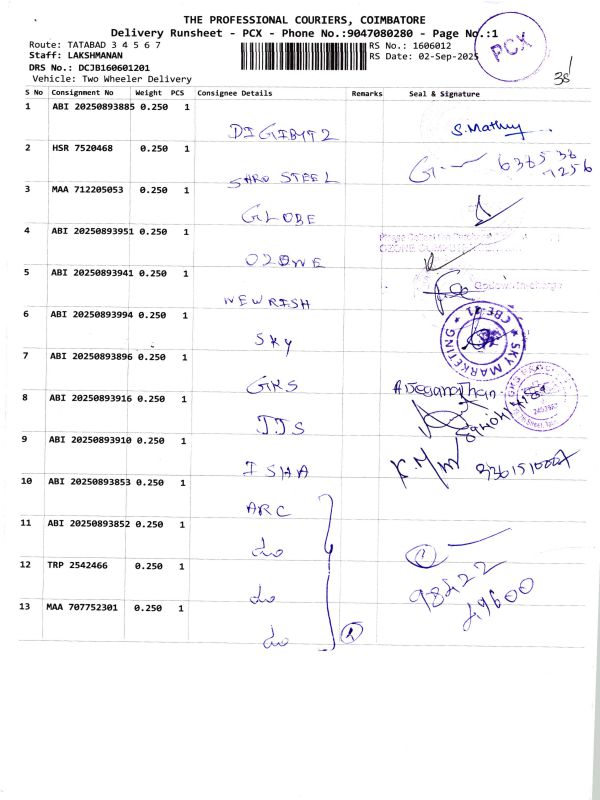 THE PROFESSIONAL COURIERS, COIMBATORE
Delivery Runsheet - PCX - Phone No.:9047080280 - Page No.:1
Route: TATABAD 3 4 5 6 7
RS No.: 1606012
Staff: LAKSHMANAN
RS Date: 02-Sep-2025
DRS No.: DCJB160601201
Vehicle: Two Wheeler Delivery
PCX
38/
S No Consignment No Weight PCS Consignee Details Remarks Seal & Signature
1 ABI 20250893885 0.250 1
DIGIBYT2 S.Mathuy
2 HSR 7520468 0.250 1
SHRO STEEL 63853 36 7256
3 MAA 712205053 0.250 1
GLOBE
4 ABI 20250893951 0.250 1
OZONE
5 ABI 20250893941 0.250 1
NEWRISH
6 ABI 20250893994 0.250 1
SKY SKY MARKETING CBE-11
7 ABI 20250893896 0.250 1
GKS A.Jeganathan
8 ABI 20250893916 0.250 1
JJS
9 ABI 20250893910 0.250 1
ISHA
10 ABI 20250893853 0.250 1
ARC
11 ABI 20250893852 0.250 1
do 1
12 TRP 2542466 0.250 1
do 98422 49600
13 MAA 707752301 0.250 1
do